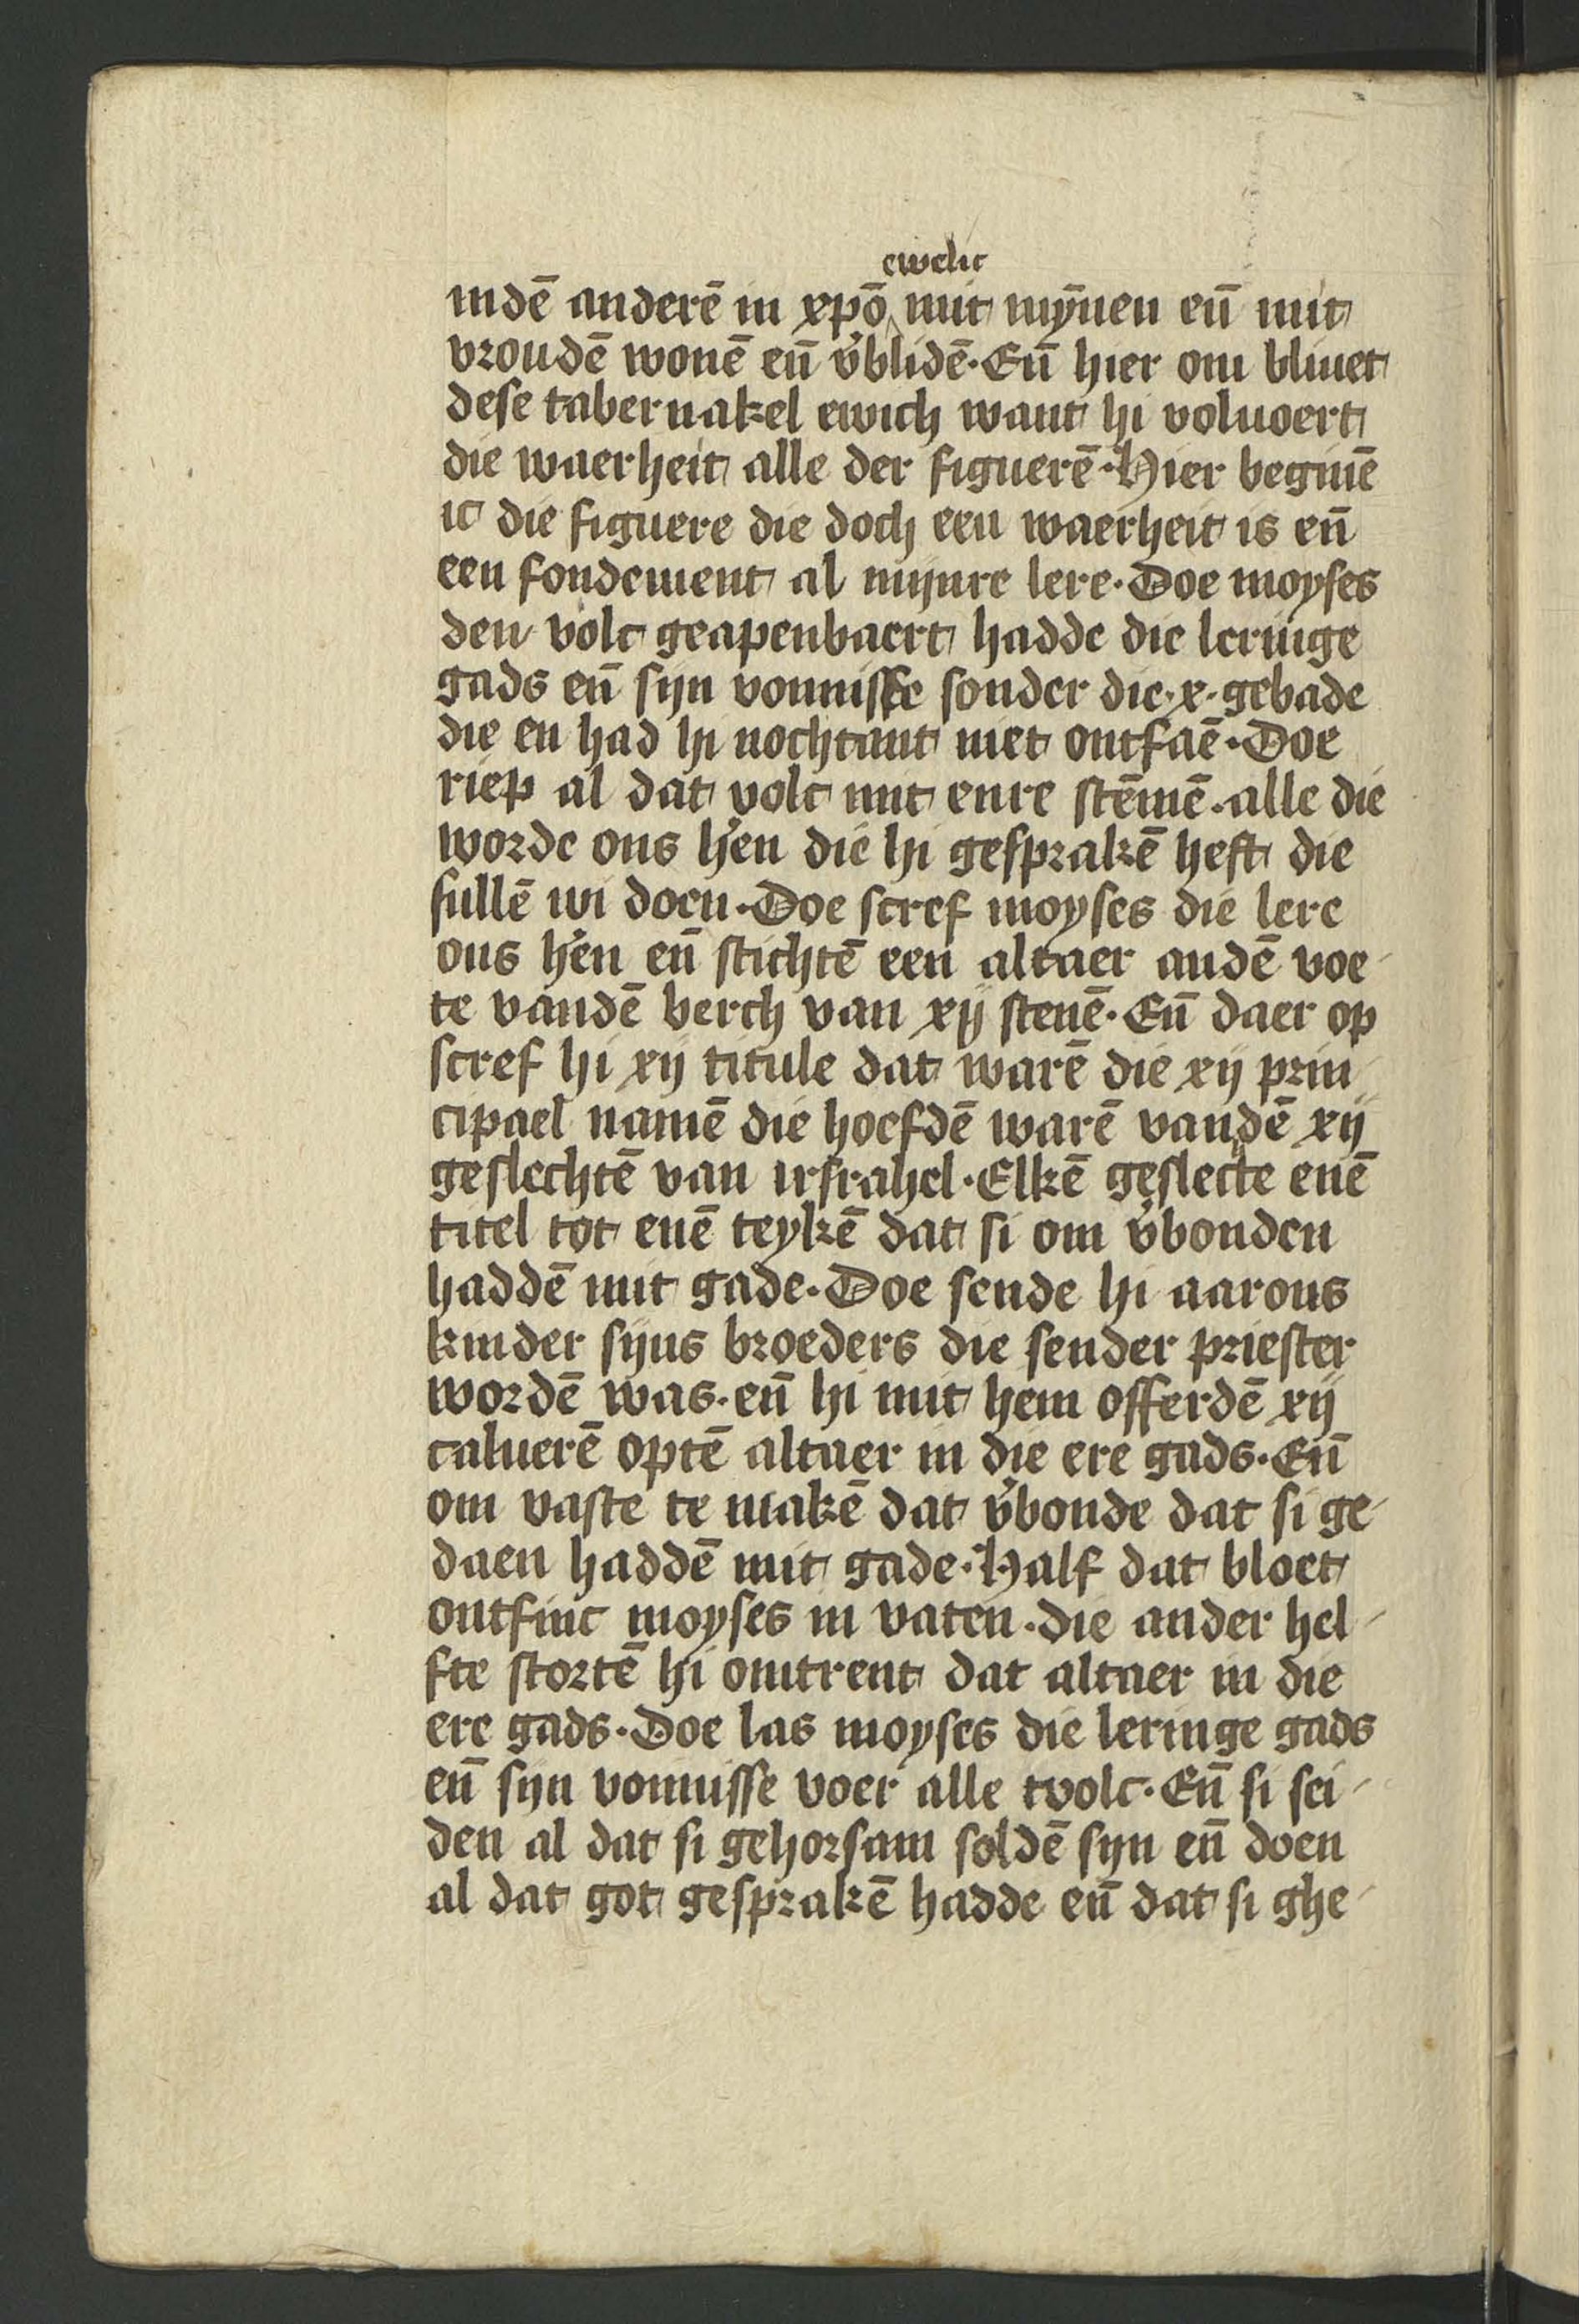 ewelic
indē anderē in xpō mit mȳnen eñ mit
vroudē wonē eñ v̓blidē · Eñ hier om bliuet
dese tabernakel ewich want hi voluoert
die waerheit alle der figuerē · Hier beginē
ic die figuere die doch een waerheit is eñ
een fondement al mijnre lere · Doe moyses
den volc geapenbaert hadde die leringe
gads eñ sijn vonnisse sonder die · x · gebade
die en had hi nochtant niet ontfaē · Doe
riep al dat volc mit enre stēmē · alle die
worde ons h̓en die hi gesprakē heft die
sullē wi doen · Doe scref moyses die lere
ons h̓en eñ stichtē een altaer andē voe-
te vandē berch van xij stenē · Eñ daer op
scref hi xij titule dat warē die xij prin-
cipael namē die hoefdē warē vandē xij
geslechtē van irsrahel · Elkē geslecte enē
titel tot enē teykē dat si om v̓bonden
haddē mit gade · Doe sende hi aarons
kinder sijns broeders die sender priester
wordē was · eñ hi mit hem offerdē xij
caluerē optē altaer in die ere gads · Eñ
om vaste te makē dat v̓bonde dat si ge-
daen haddē mit gade · Half dat bloet
ontfinc moyses in vaten · die ander hel-
fte stortē hi omtrent dat altaer in die
ere gads · Doe las moyses die leringe gads
eñ sijn vonnisse voer alle tvolc · Eñ si sei-
den al dat si gehorsam soldē sijn eñ doen
al dat got gesprakē hadde eñ dat si ghe-